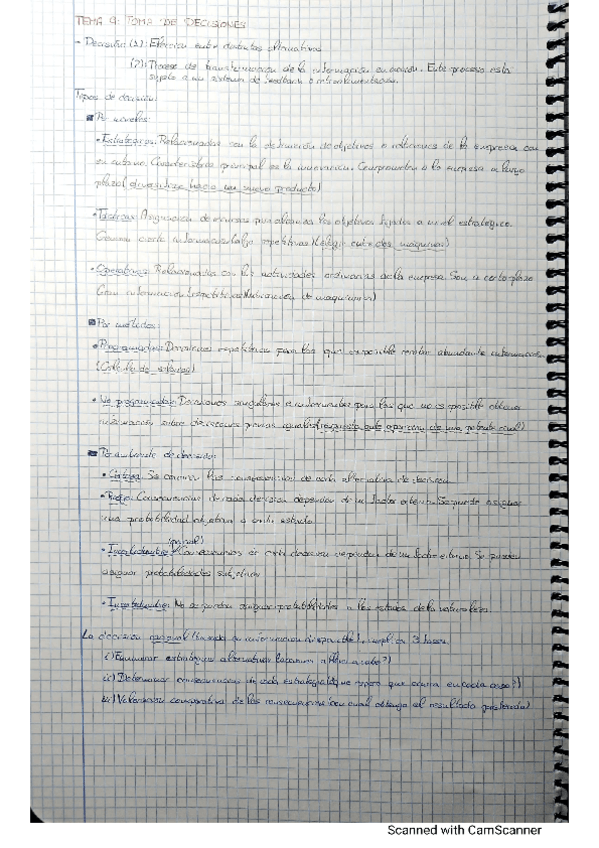 TEMA 9: TOMA DE DECISIONES
- Decisión: (1): Elección entre distintas alternativas
(2): Proceso de transformación de la información en acción. Este proceso está
sujeto a un sistema de feedback o retroalimentación.
Tipos de decisión:
Por niveles:
• Estratégicas: Relacionadas con la definición de objetivos y relaciones de la empresa con
su entorno. Característica principal es la innovación. Comprometen a la empresa a largo
plazo (diversificar hacia un nuevo producto)
• Tácticas: Asignación de recursos para alcanzar los objetivos fijados a nivel estratégico.
cierta información repetitivas (elegir entre dos máquinas)
• Operativas: Relacionadas con las actividades ordinarias de la empresa. Son a corto plazo
información repetitivas de maquinaria)
Por métodos:
• Programadas: Decisiones repetitivas para las que es posible recabar abundante información
• No programadas: Decisiones singulares para las que no es posible obtener
información sobre decisiones previas iguales
Por ambiente de decisión:
• Certeza: Se conocen las consecuencias de cada alternativa de decisión.
• Riesgo: Consecuencias de cada decisión dependen de un factor externo. Se puede asignar
una probabilidad objetiva a cada estado
• Incertidumbre Consecuencias de cada decisión dependen de un factor externo. Se pueden
asignar probabilidades subjetivas
• Incertidumbre: No se pueden asignar probabilidades a los estados de la naturaleza.
La decisión racional (basada en información disponible), implica 3 fases:
i) Enumerar estrategias alternativas
ii) Determinar consecuencias de cada estrategia (que espero que ocurra en cada caso?)
iii) Valoración comparativa de las consecuencias (con cual obtengo el resultado preferido)
Scanned with CamScanner